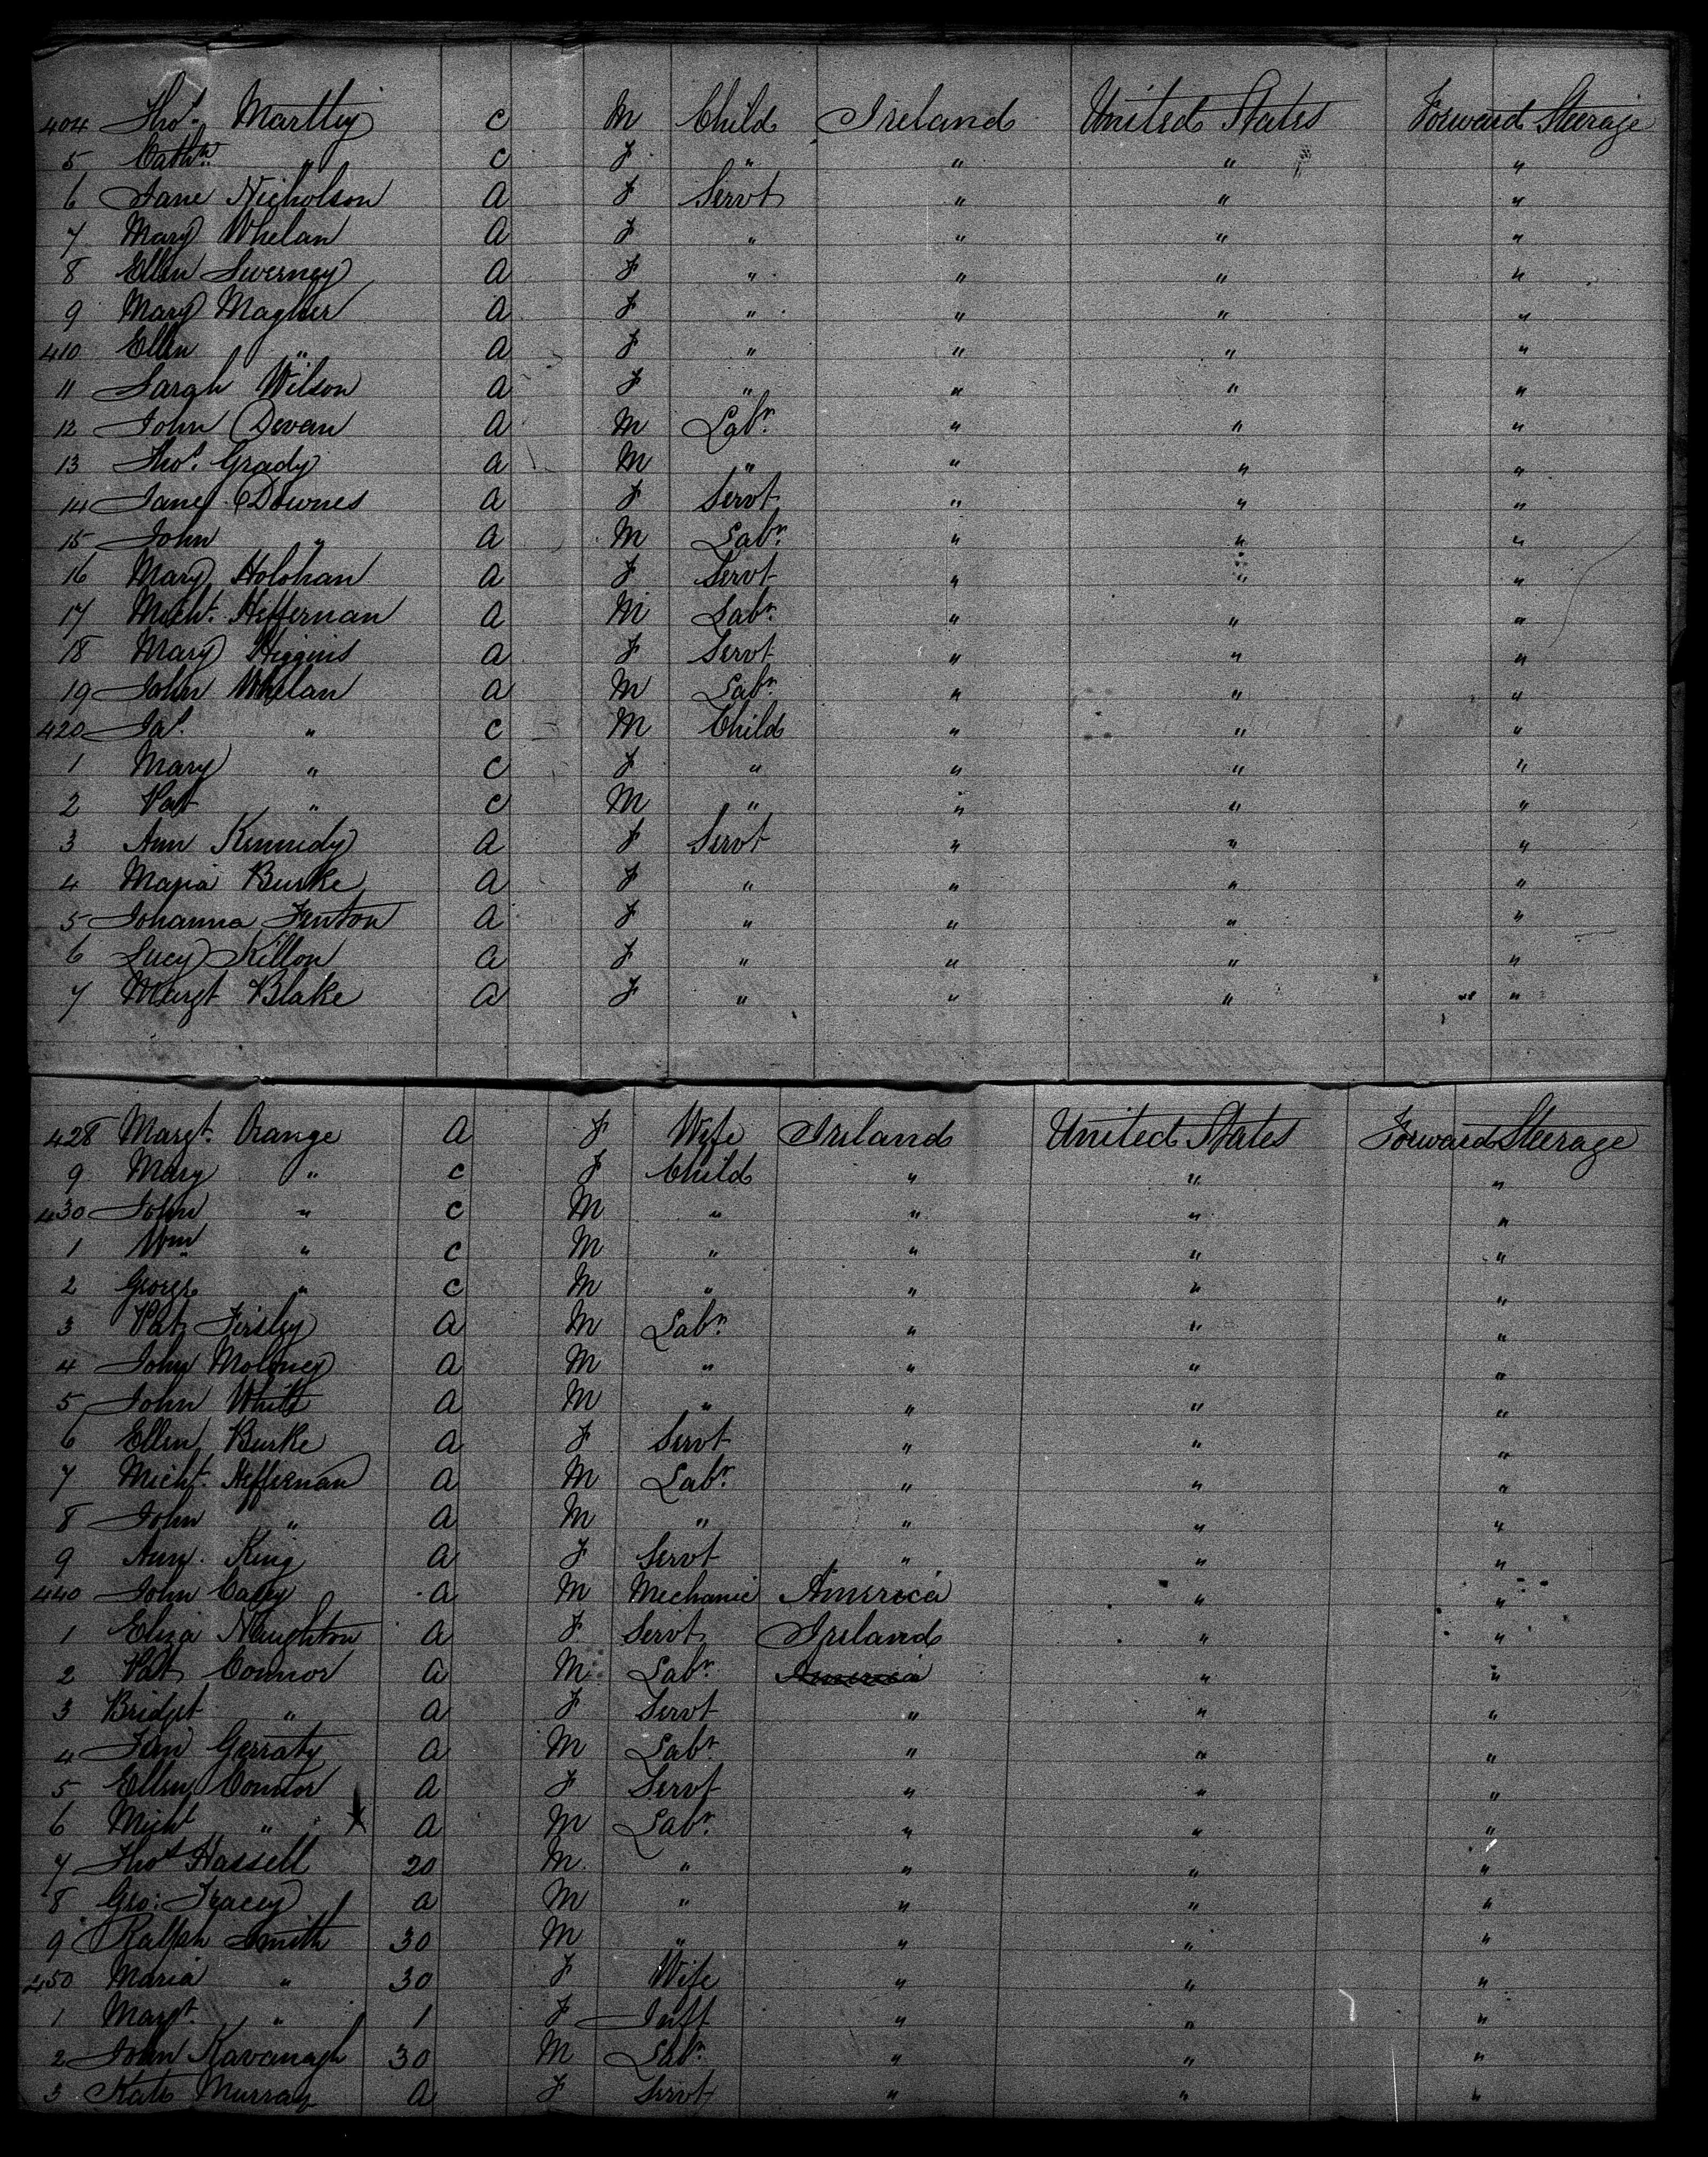 404 Thos. Marttey C M Child Ireland United States Forward Steerage
5 Cathn " C F " " " "
6 Jane Nicholson A F Servt " " "
7 Mary Whelan A F " " " "
8 Ellen Sweeney A F " " " "
9 Mary Magher A F " " " "
410 Ellen " A F " " " "
11 Sarah Wilson A F " " " "
12 John Devan A M Labr. " " "
13 Thos. Grady A M " " " "
14 Jane Downes A F Servt " " "
15 John " A M Labr. " " "
16 Mary Holohan A F Servt " " "
17 Michl. Heffernan A M Labr. " " "
18 Mary Higgins A F Servt " " "
19 John Whelan A M Labr. " " "
420 Jas. " C M Child " " "
1 Mary " C F " " " "
2 Pat " C M " " " "
3 Ann Kennedy A F Servt " " "
4 Maria Burke A F " " " "
5 Johanna Fenton A F " " " "
6 Lucy Killon A F " " " "
7 Margt Blake A F " " " "
428 Margt. Orange A F Wife Ireland United States Forward Steerage
9 Mary " C F Child " " "
430 John " C M " " " "
1 Wm " C M " " " "
2 George " C M " " " "
3 Pat A M Labr. " " "
4 John Moloney A M " " " "
5 John White A M " " " "
6 Ellen Burke A F Servt " " "
7 Michl. Heffernan A M Labr. " " "
8 John " A M " " " "
9 Ann King A F Servt " " "
440 John Casey A M Mechanic America " "
1 Eliza Naughton A F Servt Ireland " "
2 Pat Connor A M Labr. America " "
3 Bridget " A F Servt " " "
4 Gerraty A M Labr. " " "
5 Ellen Connor A F Servt " " "
6 Michl " A M Labr. " " "
7 Thos Hassell 20 M " " " "
8 Geo: Tracey A M " " " "
9 Ralph Smith 30 M " " " "
450 Maria " 30 F Wife " " "
1 Margt. " 1 F Inft " " "
2 John Kavanagh 30 M Labr. " " "
3 Kate Murray A F Servt " " "